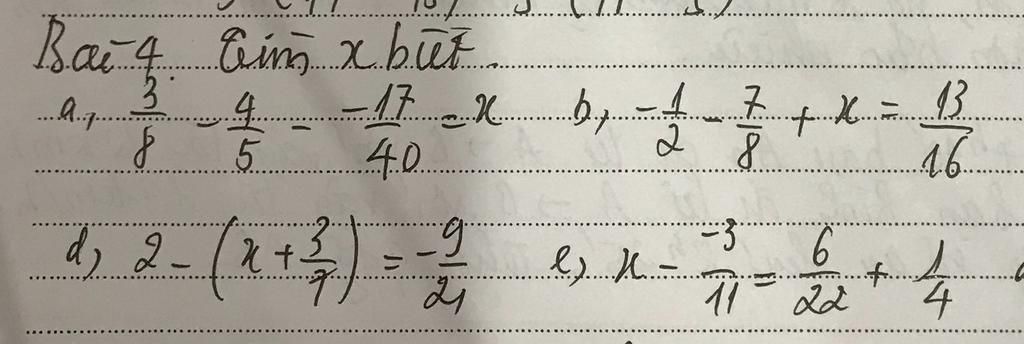 Bài 4. Tìm x biết.
a, 3/8 - 4/5 - -17/40 = x b, -1/2 - 7/8 + x = 13/16
d, 2 - (x + 3/7) = -9/21 e, x - -3/11 = 6/22 + 1/4